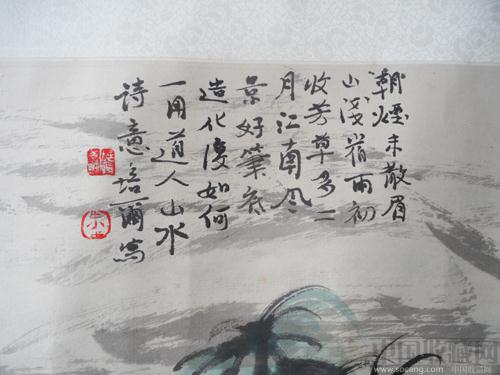 朝烟未散眉
山浅岩雨初
收芳草多二
月江南风
景好笔底
造化复如何
一用道人山水
诗意培尔写
中国收藏网
www.socang.com 中国收藏网